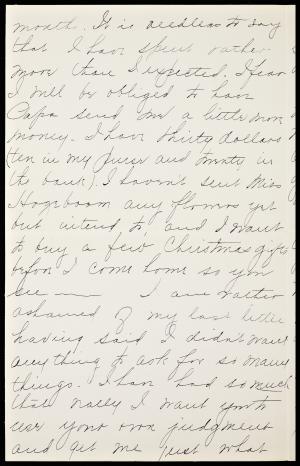 month. It is needless to say
that I have spent rather
more than I expected. I fear
I will be obliged to have
Papa send me a little more
money. I have thirty dollars
(ten in my purse and twenty in
the bank). I haven't sent Miss
Hogeboom any flowers yet
but intend to and I want
to buy a few Christmas gifts
before I come home so you
see — I am rather
ashamed of my last letter
having said I didn't want
anything to ask for so many
things. I have had so much
that really I want you to
use your own judgment
and get me just what